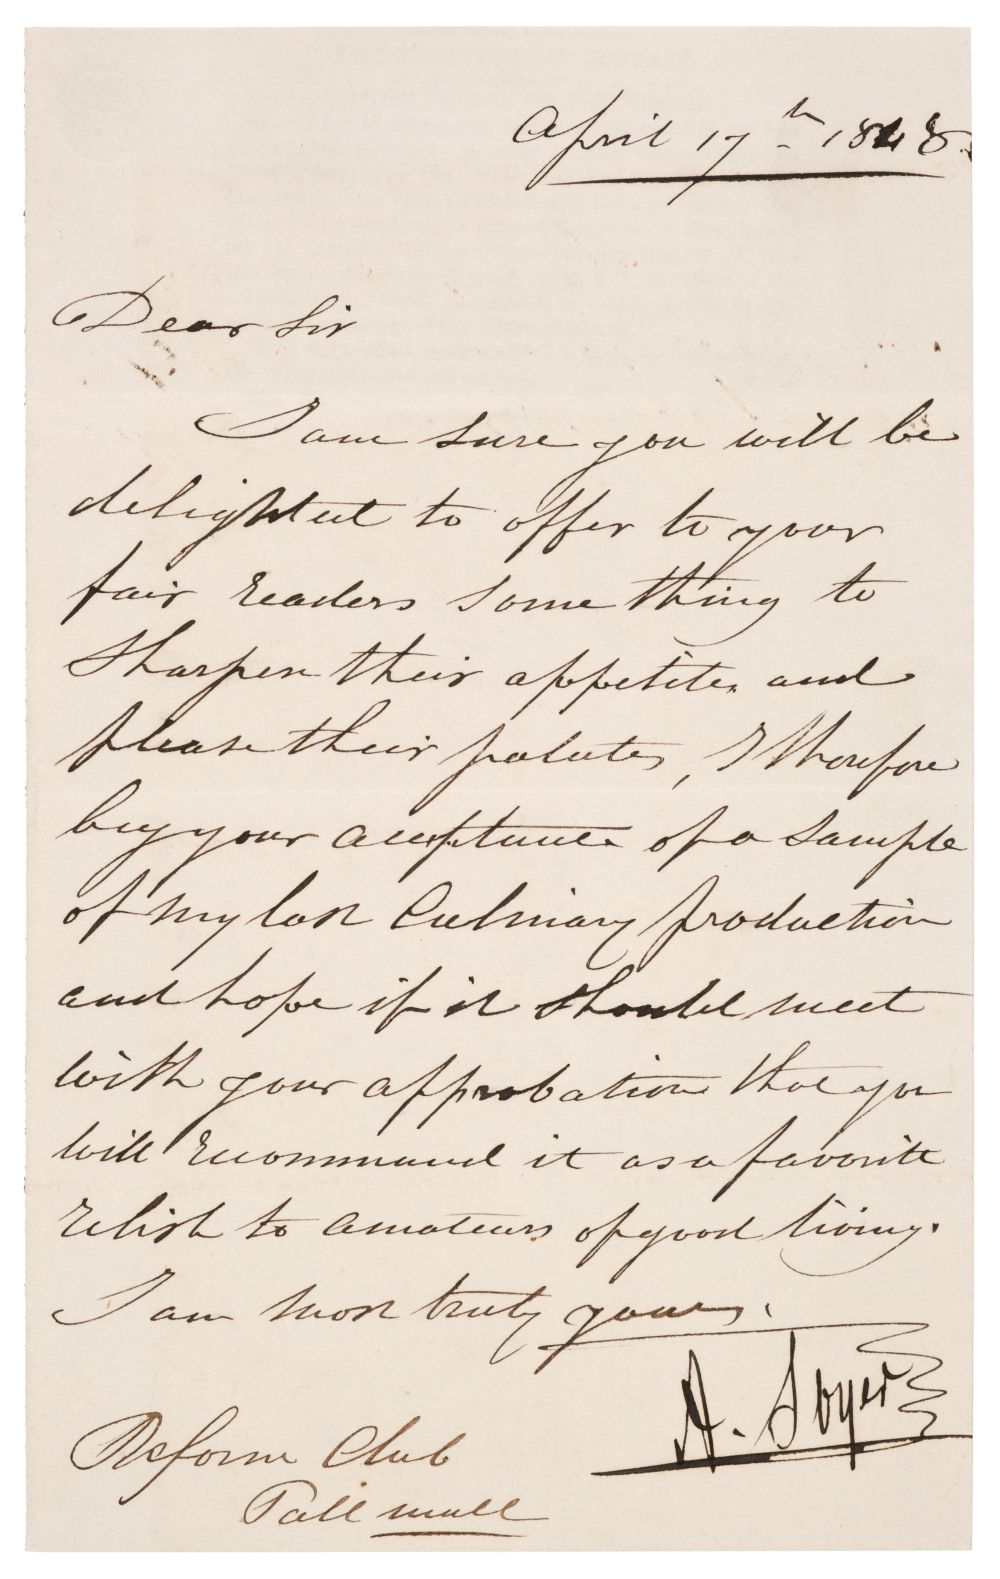 April 17th 1848.
Dear Sir
I am sure you will be
delighted to offer to your
fair readers something to
sharpen their appetite and
please their palates, I therefore
beg your acceptance of a sample
of my last Culinary production
and hope if it should meet
with your approbation that you
will recommand it as a favorite
relish to amateurs of good living.
I am most truly yours,
A. Soyer
Reform Club
Pall mall